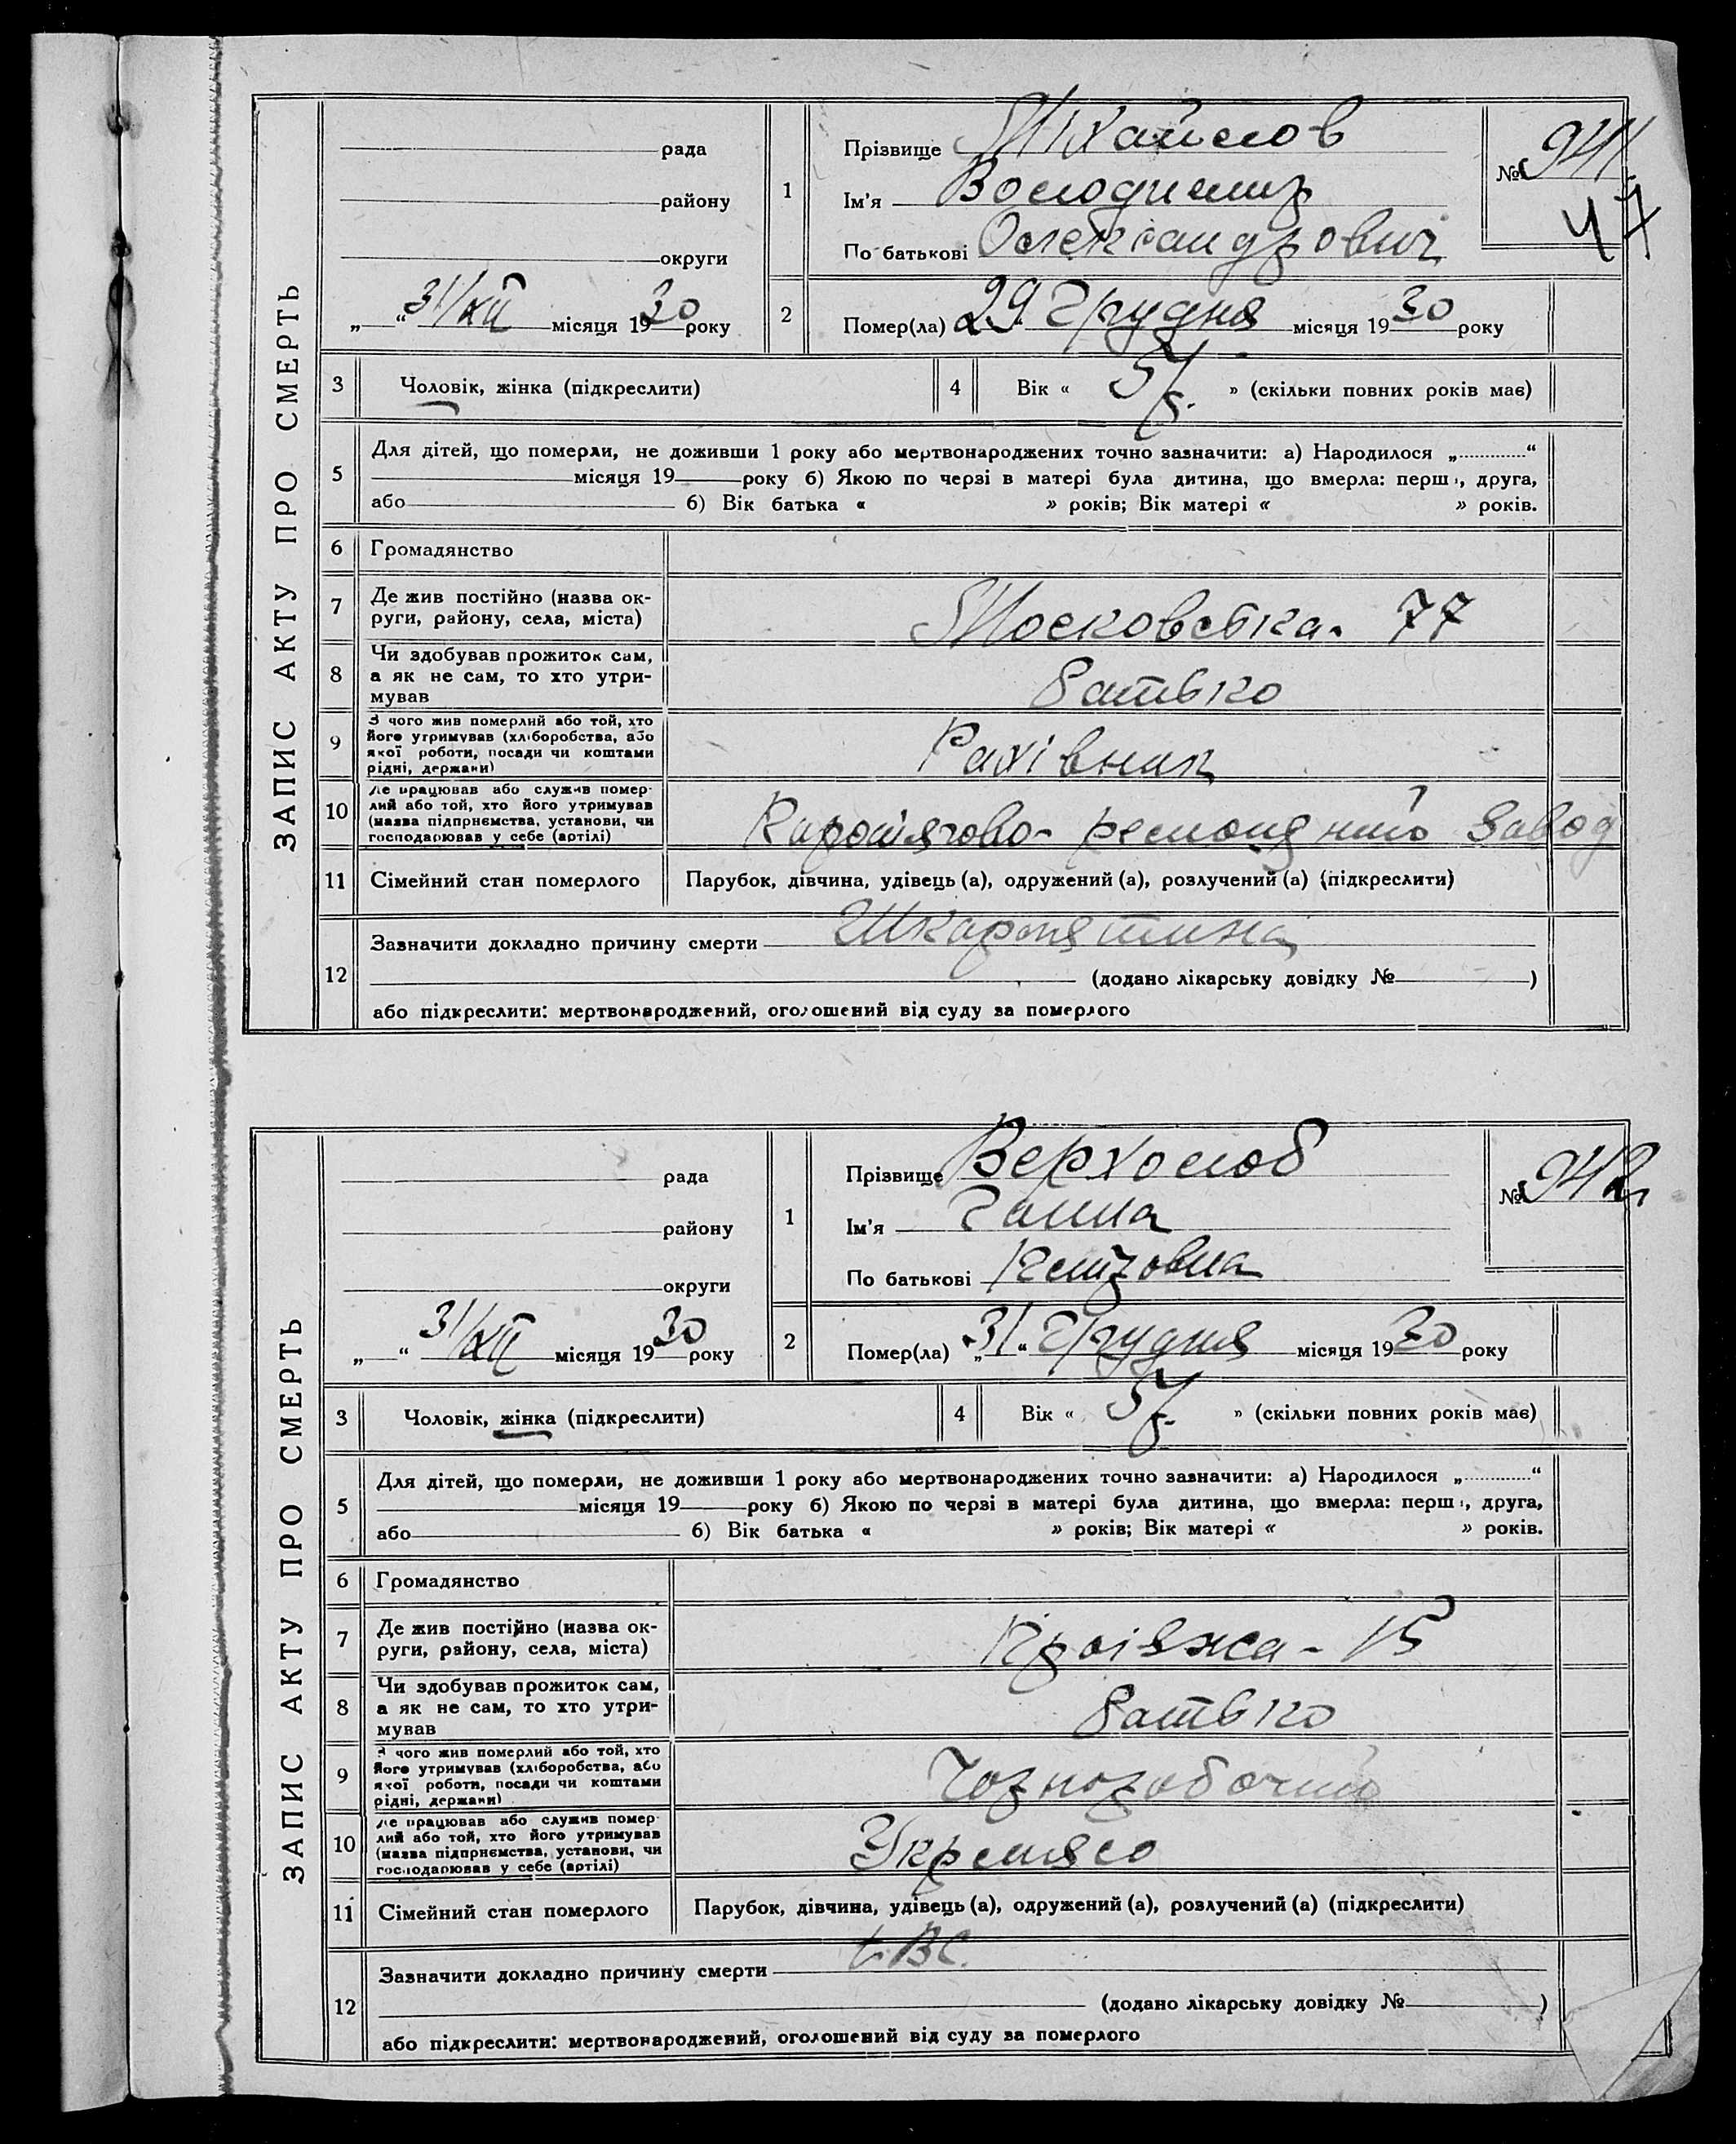 ЗАПИС АКТУ ПРО СМЕРТЬ
рада
району
округи
„ “ 31/XII місяця 1930 року
1
Прізвище Михайлов
Ім'я Володимир
По батькові Олександрович
№ 941
47
2
Помер(ла) 29 Грудня місяця 1930 року
3 Чоловік, жінка (підкреслити)
4 Вік « 5 р. » (скільки повних років має)
5
Для дітей, що померли, не доживши 1 року або мертвонароджених точно зазначити: а) Народилося „ “
місяця 19 року б) Якою по черзі в матері була дитина, що вмерла: перша, друга,
або б) Вік батька « » років; Вік матері « » років.
6 Громадянство
7 Де жив постійно (назва ок-
руги, району, села, міста)
Московська - 77
8 Чи здобував прожиток сам,
а як не сам, то хто утри-
мував
батько
9 З чого жив померлий або той, хто
його утримував (хліборобства, або
якої роботи, посади чи коштами
рідні, держави)
Рахівник
10 Де працював або служив помер-
лий або той, хто його утримував
(назва підприємства, установи, чи
господарював у себе (артілі)
завод
11 Сімейний стан померлого
Парубок, дівчина, удівець (а), одружений (а), розлучений (а) (підкреслити)
12
Зазначити докладно причину смерти Шкарлятина
(додано лікарську довідку № )
або підкреслити: мертвонароджений, оголошений від суду за померлого
ЗАПИС АКТУ ПРО СМЕРТЬ
рада
району
округи
„ “ 31/XII місяця 1930 року
1
Прізвище Верхолоб
Ім'я Ганна
По батькові
№ 942
2
Помер(ла) „31“ Грудня місяця 1930 року
3 Чоловік, жінка (підкреслити)
4 Вік « 5 р. » (скільки повних років має)
5
Для дітей, що померли, не доживши 1 року або мертвонароджених точно зазначити: а) Народилося „ “
місяця 19 року б) Якою по черзі в матері була дитина, що вмерла: перша, друга,
або б) Вік батька « » років; Вік матері « » років.
6 Громадянство
7 Де жив постійно (назва ок-
руги, району, села, міста)
Проїзжа - 15
8 Чи здобував прожиток сам,
а як не сам, то хто утри-
мував
батько
9 З чого жив померлий або той, хто
його утримував (хліборобства, або
якої роботи, посади чи коштами
рідні, держави)
Чорноробочий
10 Де працював або служив помер-
лий або той, хто його утримував
(назва підприємства, установи, чи
господарював у себе (артілі)
Укрмясо
11 Сімейний стан померлого
Парубок, дівчина, удівець (а), одружений (а), розлучений (а) (підкреслити)
12
Зазначити докладно причину смерти t. BC.
(додано лікарську довідку № )
або підкреслити: мертвонароджений, оголошений від суду за померлого